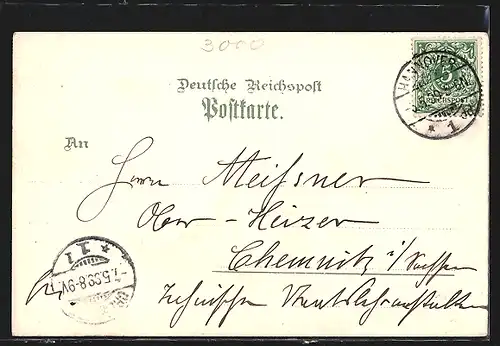 3000
Deutsche Reichspost
Postkarte.
HANNOVER
1
5
REICHSPOST
An
Herrn Meissner
Ober-Heizer
Chemnitz i/Sachsen
Technische Staatslehranstalten
1.5.99.8-9V.